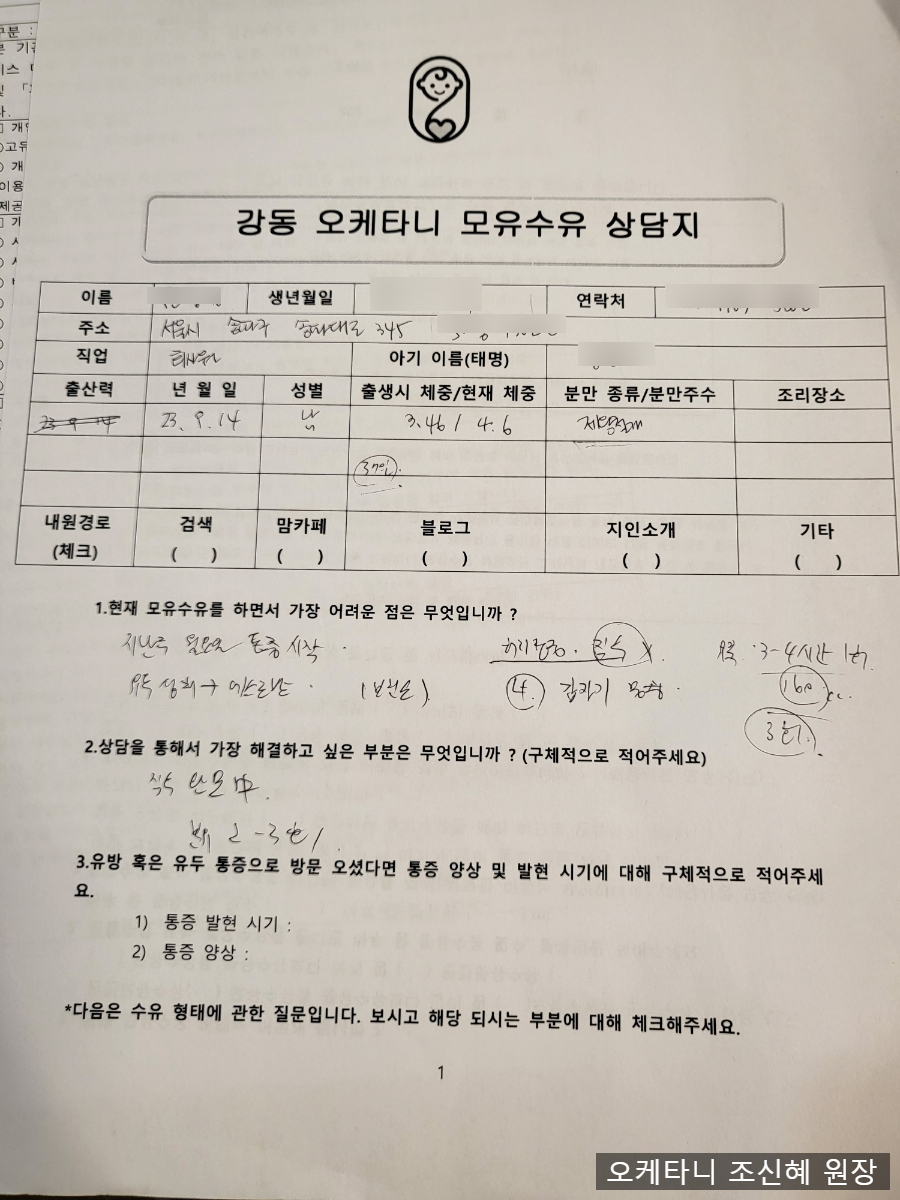 구분 :
강동 오케타니 모유수유 상담지
이름 생년월일 연락처
주소 서울시 송파구 송파대로 345
직업 회사원 아기 이름(태명)
출산력 년 월 일 성별 출생시 체중/현재 체중 분만 종류/분만주수 조리장소
23. 9. 14 남 3.46 / 4.6 제왕절개
37일
내원경로 검색 맘카페 블로그 지인소개 기타
(체크) ( ) ( ) ( ) ( ) ( )
1.현재 모유수유를 하면서 가장 어려운 점은 무엇입니까 ?
지난주 월요일 통증 시작 직수 X. 유축 3-4시간 1회.
4. 갑자기 160 cc.
3회.
2.상담을 통해서 가장 해결하고 싶은 부분은 무엇입니까 ? (구체적으로 적어주세요)
직수
2-3
3.유방 혹은 유두 통증으로 방문 오셨다면 통증 양상 및 발현 시기에 대해 구체적으로 적어주세
요.
1) 통증 발현 시기 :
2) 통증 양상 :
*다음은 수유 형태에 관한 질문입니다. 보시고 해당 되시는 부분에 대해 체크해주세요.
1
오케타니 조신혜 원장